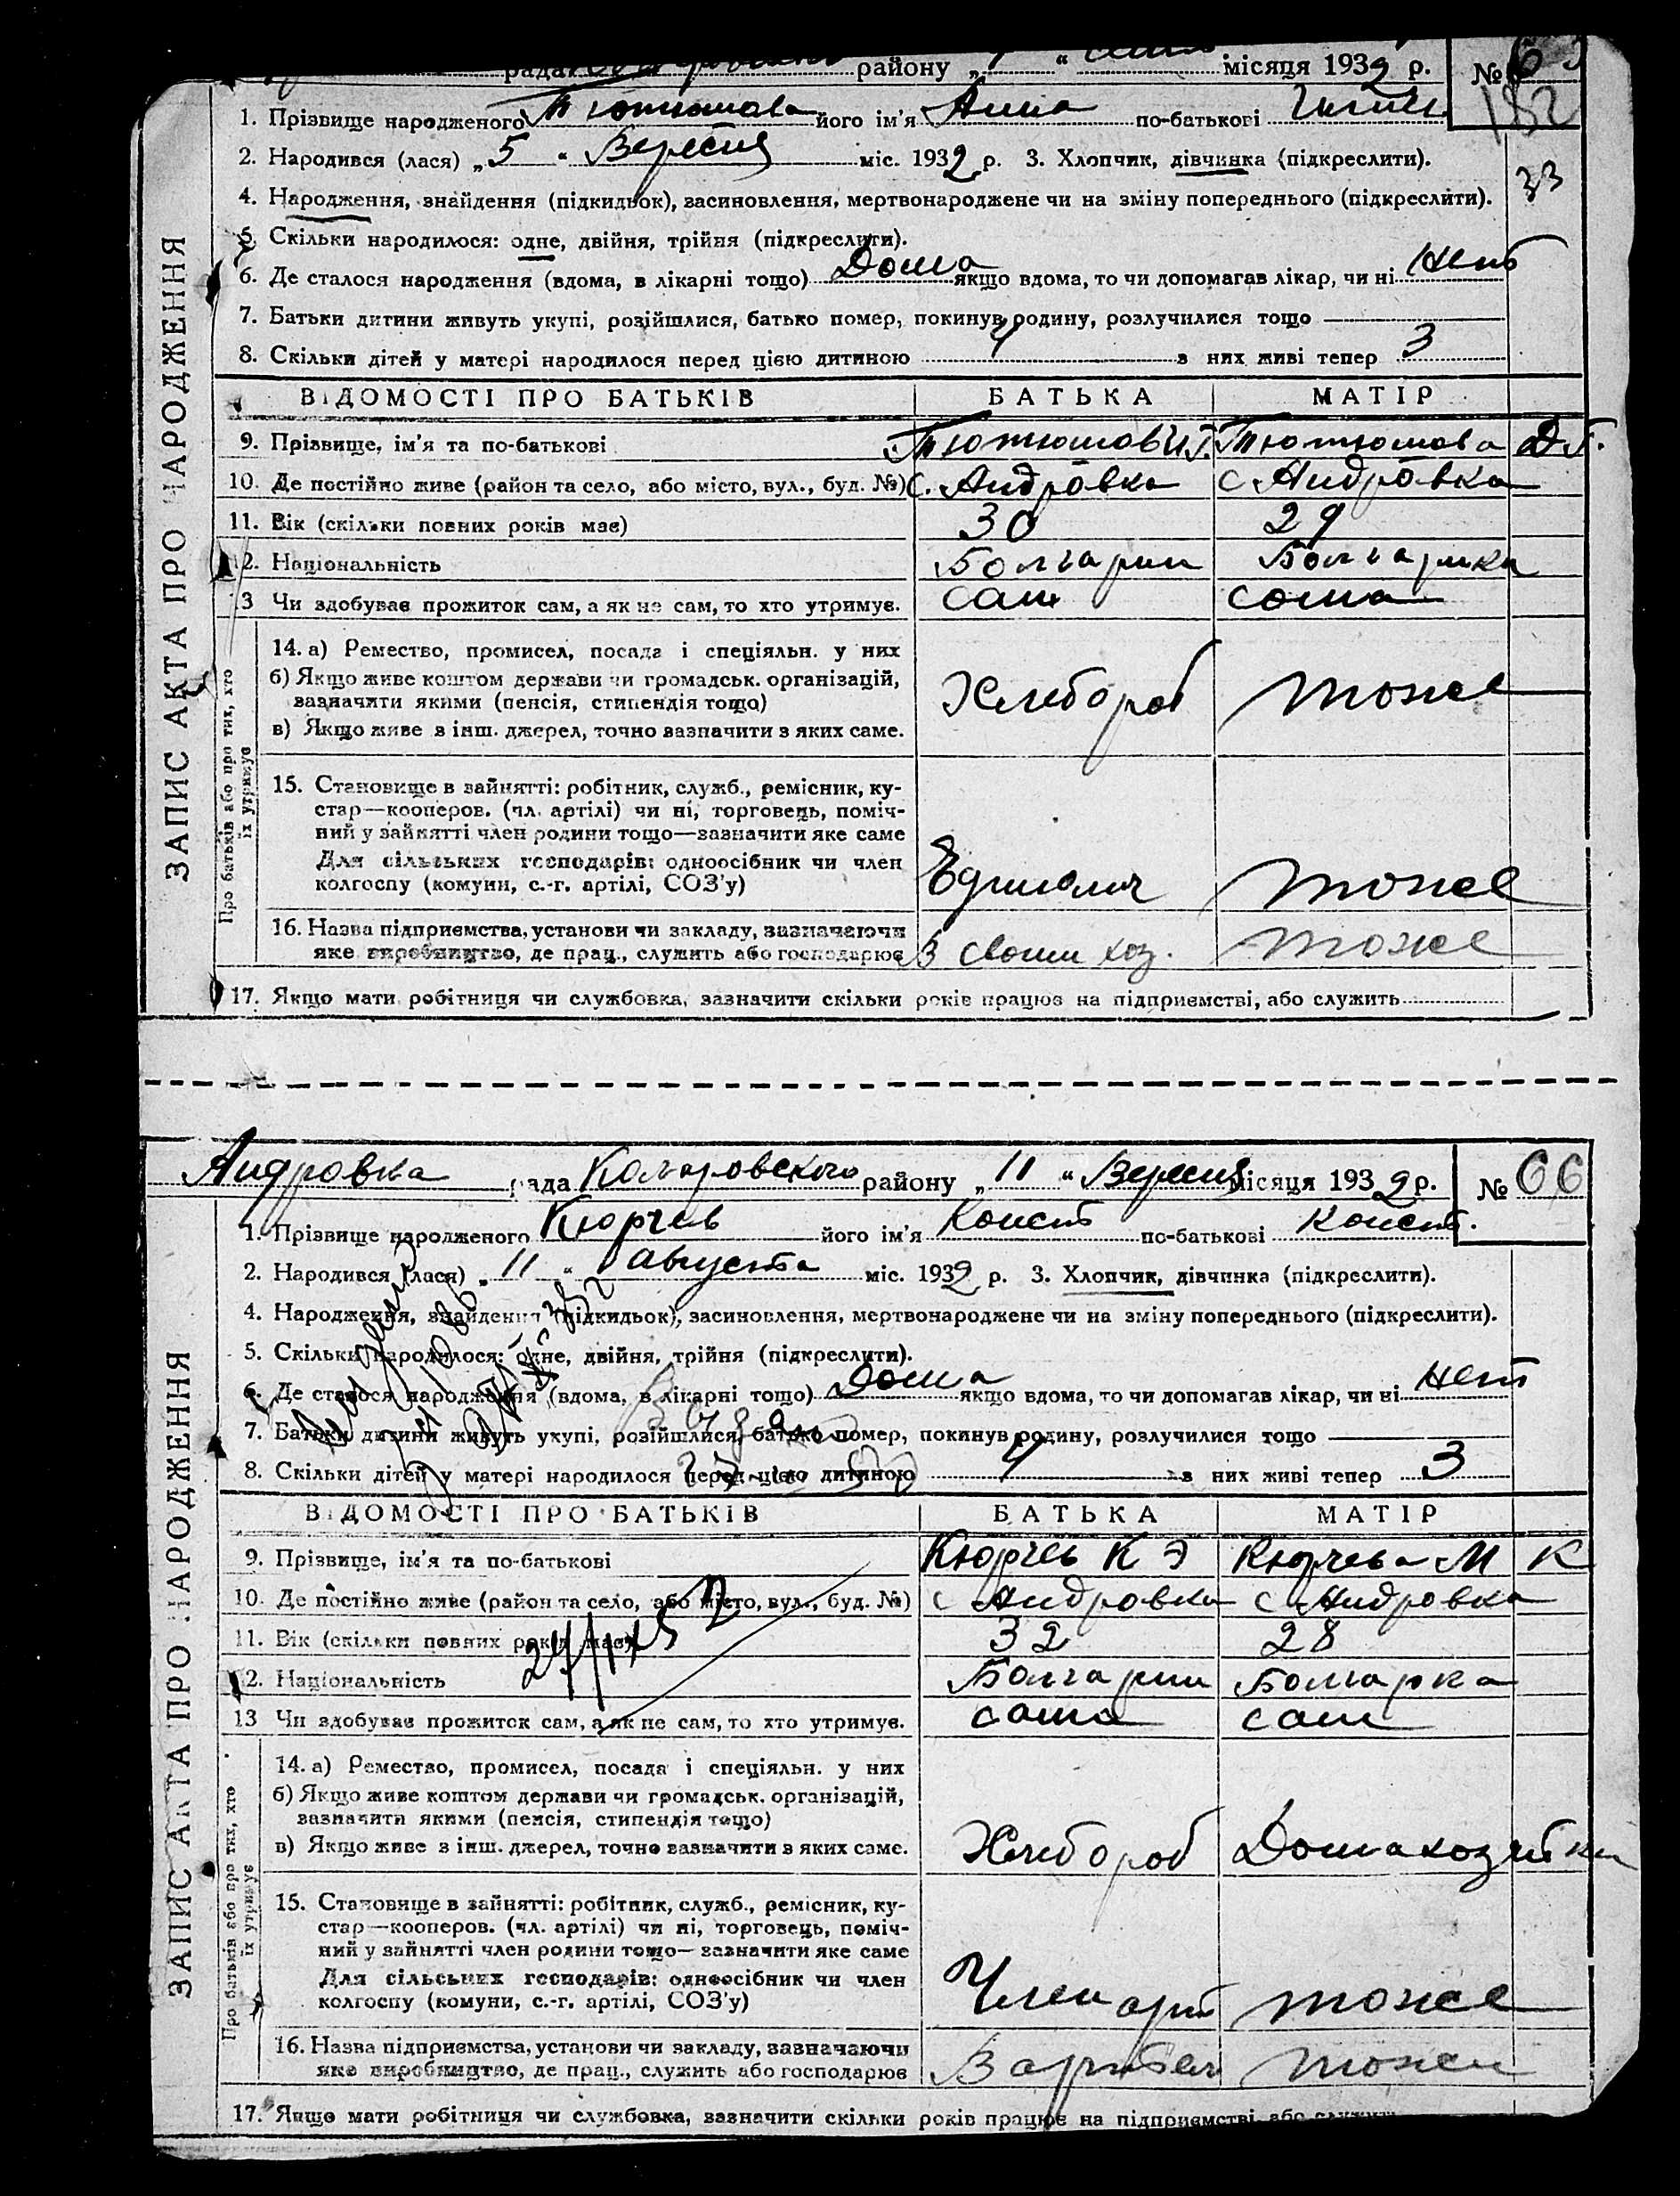 рада району „ “ місяця 1932 р. № 65
182
1. Прізвище народженого Тютюшова його ім'я Анна по-батькові
2. Народився (лася) „ 5 “ Вересня міс. 1932 р. 3. Хлопчик, дівчинка (підкреслити).
33
4. Народження, знайдення (підкидьок), засиновлення, мертвонароджене чи на зміну попереднього (підкреслити).
5. Скільки народилося: одне, двійня, трійня (підкреслити).
6. Де сталося народження (вдома, в лікарні тощо) Дома якщо вдома, то чи допомагав лікар, чи ні Нет
7. Батьки дитини живуть укупі, розійшлися, батько помер, покинув родину, розлучилися тощо
8. Скільки дітей у матері народилося перед цією дитиною 4 з них живі тепер 3
ВІДОМОСТІ ПРО БАТЬКІВ БАТЬКА МАТІР
9. Прізвище, ім'я та по-батькові Тютюшов И.Г. Тютюшова Д.Г.
10. Де постійно живе (район та село, або місто, вул., буд. №) с. Андровка с Андровка
11. Вік (скільки повних років має) 30 29
12. Національність Болгарин Болгарка
13 Чи здобуває прожиток сам, а як не сам, то хто утримує. сам сама
14. а) Ремество, промисел, посада і спеціяльн. у них
б) Якщо живе коштом держави чи громадськ. організацій,
зазначити якими (пенсія, стипендія тощо)
в) Якщо живе з інш. джерел, точно зазначити з яких саме.
Хлебороб тоже
15. Становище в зайнятті: робітник, служб., ремісник, ку-
стар—кооперов. (чл. артілі) чи ні, торговець, поміч-
ний у зайнятті член родини тощо—зазначити яке саме
Для сільських господарів: одноосібник чи член
колгоспу (комуни, с.-г. артілі, СОЗ'у)
Единолич тоже
16. Назва підприємства, установи чи закладу, зазначаючи
яке виробництво, де прац., служить або господарює В своим хоз. тоже
17. Якщо мати робітниця чи службовка, зазначити скільки років працює на підприємстві, або служить
ЗАПИС АКТА ПРО НАРОДЖЕННЯ
Про батьків або про тих, хто
їх утримує
Андровка рада Коларовского району „ 11 “ Вересня місяця 1932 р. № 66
1. Прізвище народженого Кюрчев його ім'я Конст по-батькові Конст.
2. Народився (лася) „ 11 “ августа міс. 1932 р. 3. Хлопчик, дівчинка (підкреслити).
4. Народження, знайдення (підкидьок), засиновлення, мертвонароджене чи на зміну попереднього (підкреслити).
5. Скільки народилося: одне, двійня, трійня (підкреслити).
6. Де сталося народження (вдома, в лікарні тощо) Дома якщо вдома, то чи допомагав лікар, чи ні Нет
7. Батьки дитини живуть укупі, розійшлися, батько помер, покинув родину, розлучилися тощо
8. Скільки дітей у матері народилося перед цією дитиною 4 з них живі тепер 3
ВІДОМОСТІ ПРО БАТЬКІВ БАТЬКА МАТІР
9. Прізвище, ім'я та по-батькові Кюрчев К Э Кюрчева М К
10. Де постійно живе (район та село, або місто, вул., буд. №) с Андровка с Андровка
11. Вік (скільки повних років має) 32 28
12. Національність Болгарин Болгарка
13 Чи здобуває прожиток сам, а як не сам, то хто утримує. сама сам
14. а) Ремество, промисел, посада і спеціяльн. у них
б) Якщо живе коштом держави чи громадськ. організацій,
зазначити якими (пенсія, стипендія тощо)
в) Якщо живе з інш. джерел, точно зазначити з яких саме.
Хлебороб Домахозяйка
15. Становище в зайнятті: робітник, служб., ремісник, ку-
стар—кооперов. (чл. артілі) чи ні, торговець, поміч-
ний у зайнятті член родини тощо—зазначити яке саме
Для сільських господарів: одноосібник чи член
колгоспу (комуни, с.-г. артілі, СОЗ'у)
Член арт тоже
16. Назва підприємства, установи чи закладу, зазначаючи
яке виробництво, де прац., служить або господарює В артели тоже
17. Якщо мати робітниця чи службовка, зазначити скільки років працює на підприємстві, або служить
ЗАПИС АКТА ПРО НАРОДЖЕННЯ
Про батьків або про тих, хто
їх утримує